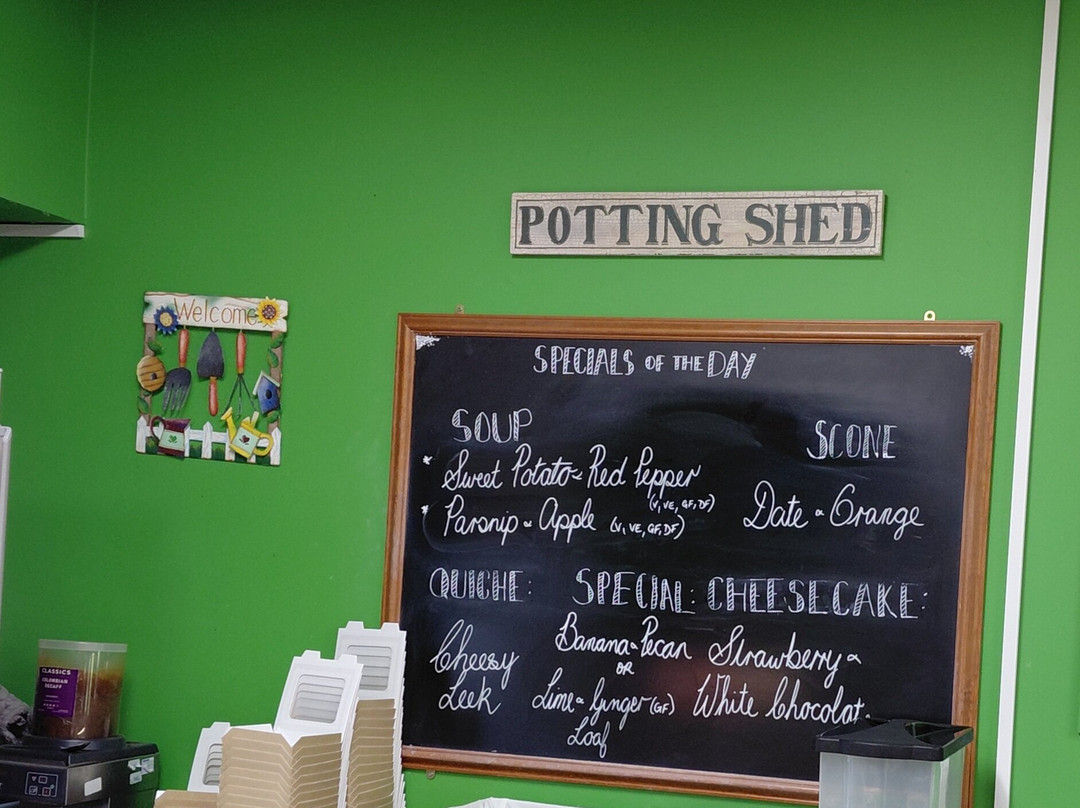 POTTING SHED
Welcome
SPECIALS OF THE DAY
SOUP
* Sweet Potato & Red Pepper
(V, VE, GF, DF)
* Parsnip & Apple (V, VE, GF, DF)
SCONE
Date & Orange
QUICHE:
Cheesy
Leek
SPECIAL:
Banana & Pecan
OR
Lime & Ginger (GF)
Loaf
CHEESECAKE:
Strawberry &
White Chocolat
CLASSICS
COLOMBIAN
DECAFF